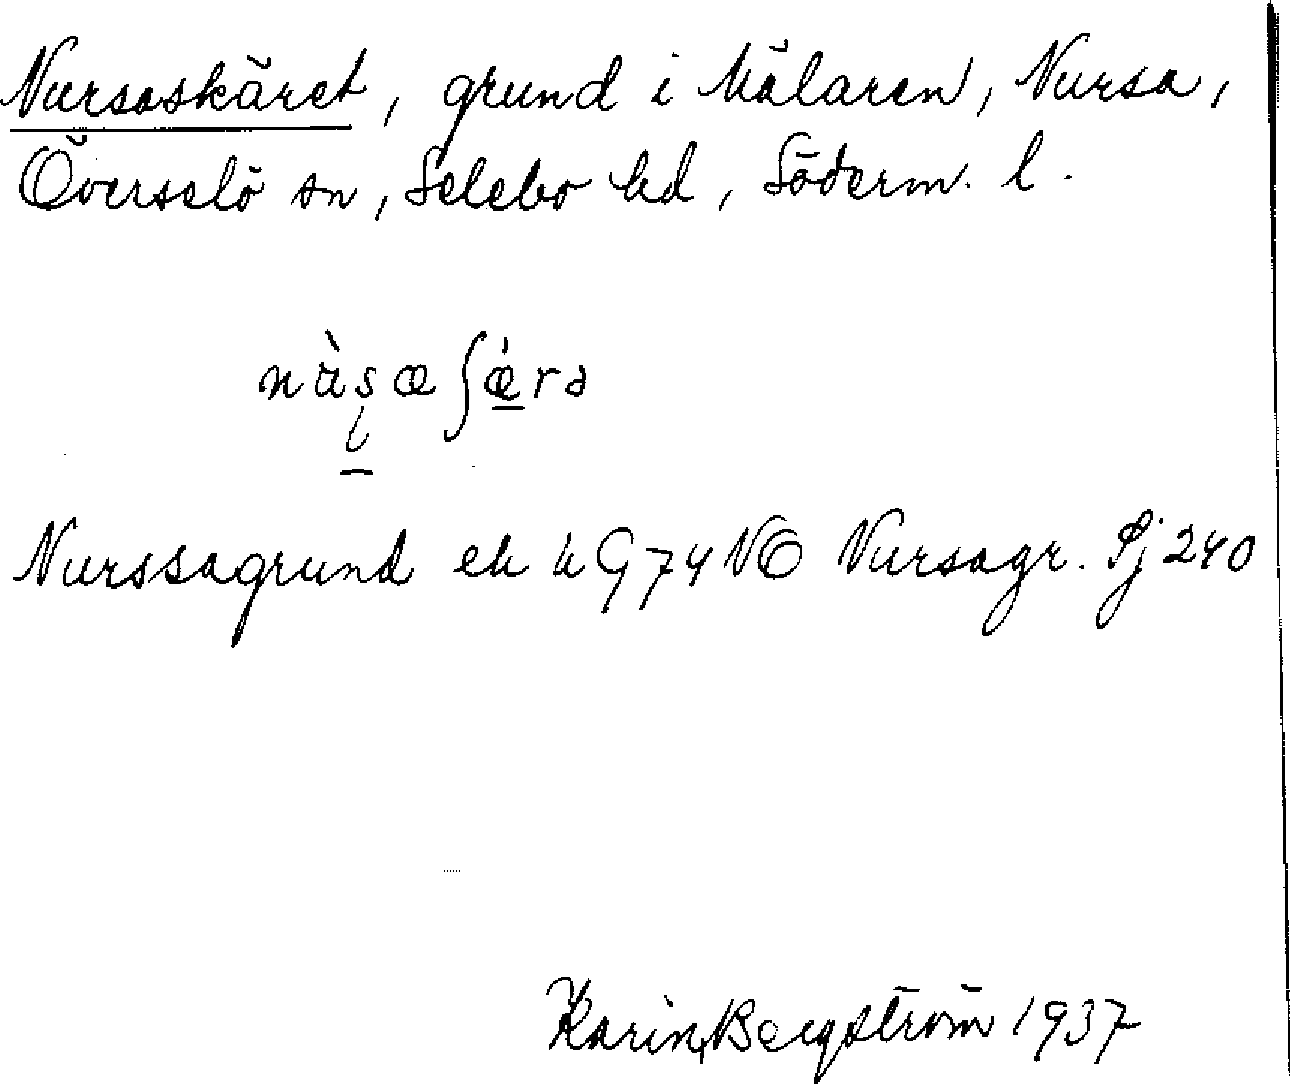 Nursaskäret, grund i Mälaren, Nursa,
Överselö sn, Selebo hd, Söderm. l.
Nurssagrund ek bl G 74 NO Nursagr. Sj 240
Karin Bergström 1937